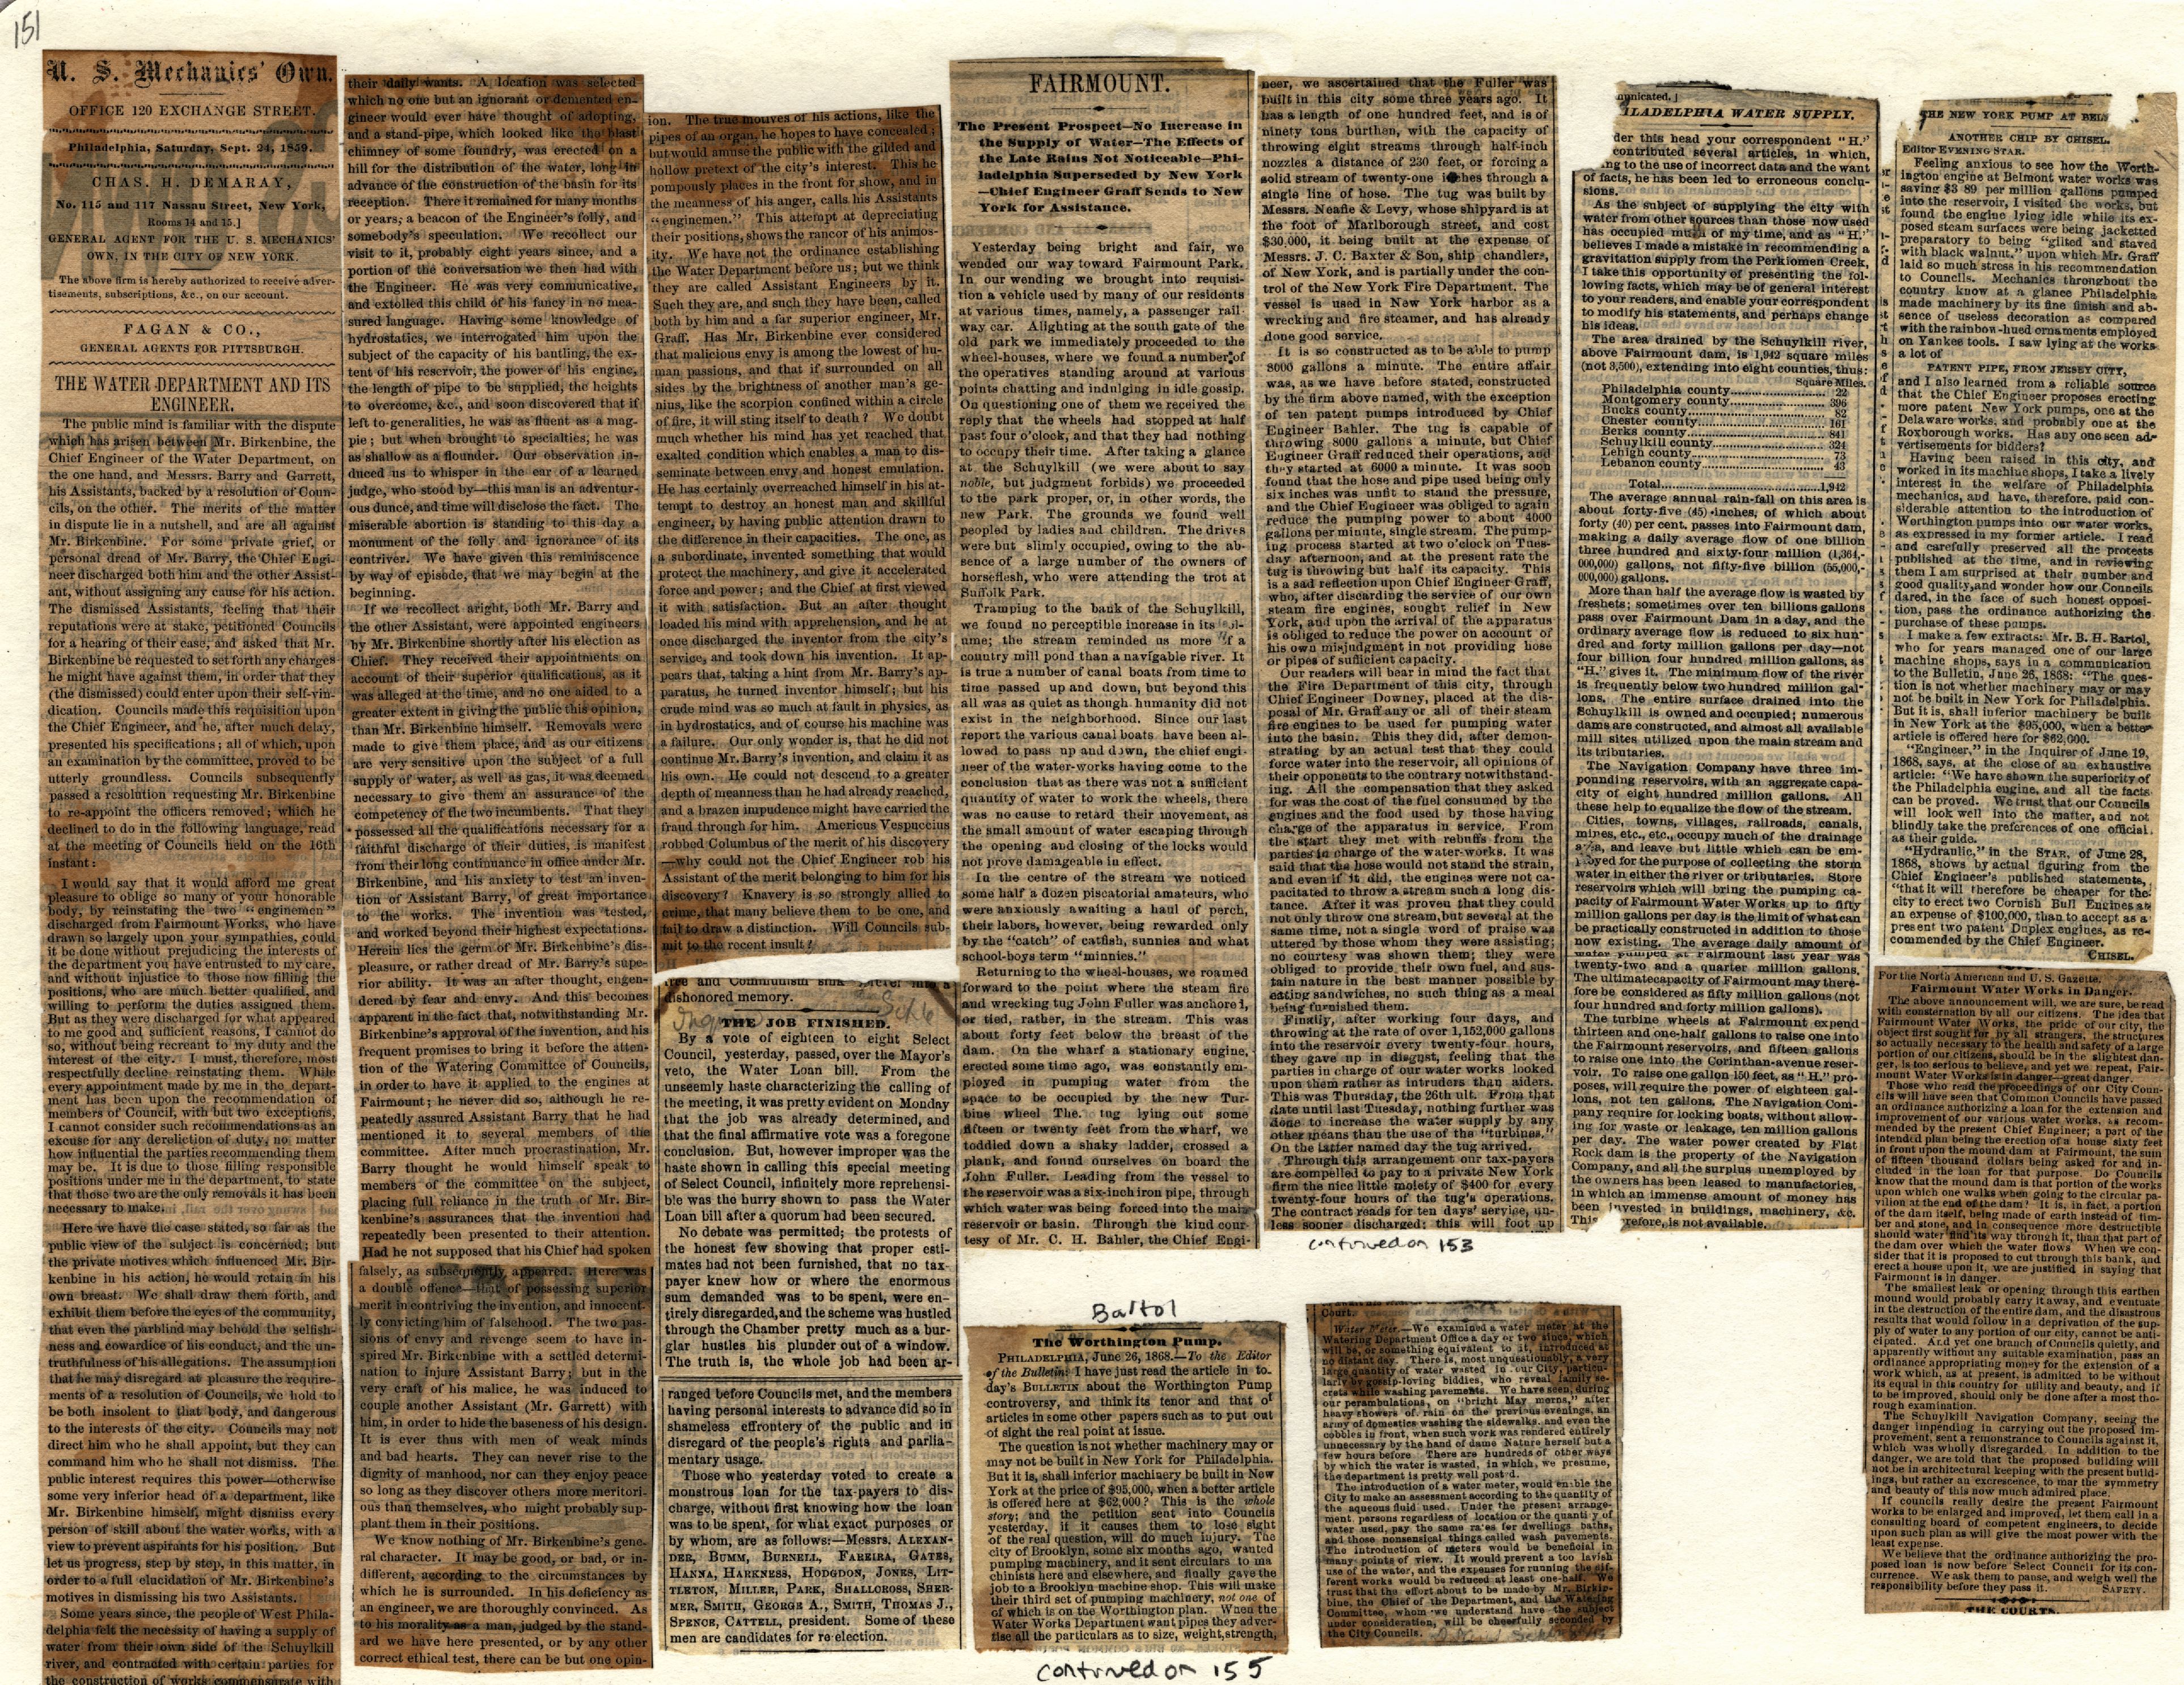 151
U. S. Mechanics' Own.
OFFICE 120 EXCHANGE STREET.
Philadelphia, Saturday, Sept. 24, 1859.
CHAS. H. DEMARAY,
No. 115 and 117 Nassau Street, New York,
Rooms 14 and 15.]
GENERAL AGENT FOR THE U. S. MECHANICS'
OWN, IN THE CITY OF NEW YORK.
The above firm is hereby authorized to receive adver-
tisements, subscriptions, &c., on our account.
FAGAN & CO.,
GENERAL AGENTS FOR PITTSBURGH.
THE WATER DEPARTMENT AND ITS
ENGINEER.
The public mind is familiar with the dispute
which has arisen between Mr. Birkenbine, the
Chief Engineer of the Water Department, on
the one hand, and Messrs. Barry and Garrett,
his Assistants, backed by a resolution of Coun-
cils, on the other. The merits of the matter
in dispute lie in a nutshell, and are all against
Mr. Birkenbine. For some private grief, or
personal dread of Mr. Barry, the Chief Engi-
neer discharged both him and the other Assist-
ant, without assigning any cause for his action.
The dismissed Assistants, feeling that their
reputations were at stake, petitioned Councils
for a hearing of their case, and asked that Mr.
Birkenbine be requested to set forth any charges
he might have against them, in order that they
(the dismissed) could enter upon their self-vin-
dication. Councils made this requisition upon
the Chief Engineer, and he, after much delay,
presented his specifications; all of which, upon
an examination by the committee, proved to be
utterly groundless. Councils subsequently
passed a resolution requesting Mr. Birkenbine
to re-appoint the officers removed; which he
declined to do in the following language, read
at the meeting of Councils held on the 16th
instant:
I would say that it would afford me great
pleasure to oblige so many of your honorable
body, by reinstating the two "enginemen"
discharged from Fairmount Works, who have
drawn so largely upon your sympathies, could
it be done without prejudicing the interests of
the department you have entrusted to my care,
and without injustice to those now filling the
positions, who are much better qualified, and
willing to perform the duties assigned them.
But as they were discharged for what appeared
to me good and sufficient reasons, I cannot do
so, without being recreant to my duty and the
interest of the city. I must, therefore, most
respectfully decline reinstating them. While
every appointment made by me in the depart-
ment has been upon the recommendation of
members of Council, with but two exceptions,
I cannot consider such recommendations as an
excuse for any dereliction of duty, no matter
how influential the parties recommending them
may be. It is due to those filling responsible
positions under me in the department, to state
that those two are the only removals it has been
necessary to make.
Here we have the case stated, so far as the
public view of the subject is concerned; but
the private motives which influenced Mr. Bir-
kenbine in his action, he would retain in his
own breast. We shall draw them forth, and
exhibit them before the eyes of the community,
that even the parblind may behold the selfish-
ness and cowardice of his conduct, and the un-
truthfulness of his allegations. The assumption
that he may disregard at pleasure the require-
ments of a resolution of Councils, we hold to
be both insolent to that body, and dangerous
to the interests of the city. Councils may not
direct him who he shall appoint, but they can
command him who he shall not dismiss. The
public interest requires this power—otherwise
some very inferior head of a department, like
Mr. Birkenbine himself, might dismiss every
person of skill about the water works, with a
view to prevent aspirants for his position. But
let us progress, step by step, in this matter, in
order to a full elucidation of Mr. Birkenbine's
motives in dismissing his two Assistants.
Some years since, the people of West Phila-
delphia felt the necessity of having a supply of
water from their own side of the Schuylkill
river, and contracted with certain parties for
the construction of works commensurate with
their daily wants. A location was selected
which no one but an ignorant or demented en-
gineer would ever have thought of adopting,
and a stand-pipe, which looked like the blast
chimney of some foundry, was erected on a
hill for the distribution of the water, long in
advance of the construction of the basin for its
reception. There it remained for many months
or years, a beacon of the Engineer's folly, and
somebody's speculation. We recollect our
visit to it, probably eight years since, and a
portion of the conversation we then had with
the Engineer. He was very communicative,
and extolled this child of his fancy in no mea-
sured language. Having some knowledge of
hydrostatics, we interrogated him upon the
subject of the capacity of his bantling, the ex-
tent of his reservoir, the power of his engine,
the length of pipe to be supplied, the heights
to overcome, &c., and soon discovered that if
left to generalities, he was as fluent as a mag-
pie; but when brought to specialties, he was
as shallow as a flounder. Our observation in-
duced us to whisper in the ear of a learned
judge, who stood by—this man is an adventur-
ous dunce, and time will disclose the fact. The
miserable abortion is standing to this day a
monument of the folly and ignorance of its
contriver. We have given this reminiscence
by way of episode, that we may begin at the
beginning.
If we recollect aright, both Mr. Barry and
the other Assistant, were appointed engineers
by Mr. Birkenbine shortly after his election as
Chief. They received their appointments on
account of their superior qualifications, as it
was alleged at the time, and no one aided to a
greater extent in giving the public this opinion,
than Mr. Birkenbine himself. Removals were
made to give them place, and as our citizens
are very sensitive upon the subject of a full
supply of water, as well as gas, it was deemed
necessary to give them an assurance of the
competency of the two incumbents. That they
possessed all the qualifications necessary for a
faithful discharge of their duties, is manifest
from their long continuance in office under Mr.
Birkenbine, and his anxiety to test an inven-
tion of Assistant Barry, of great importance
to the works. The invention was tested,
and worked beyond their highest expectations.
Herein lies the germ of Mr. Birkenbine's dis-
pleasure, or rather dread of Mr. Barry's supe-
rior ability. It was an after thought, engen-
dered by fear and envy. And this becomes
apparent in the fact that, notwithstanding Mr.
Birkenbine's approval of the invention, and his
frequent promises to bring it before the atten-
tion of the Watering Committee of Councils,
in order to have it applied to the engines at
Fairmount; he never did so, although he re-
peatedly assured Assistant Barry that he had
mentioned it to several members of the
committee. After much procrastination, Mr.
Barry thought he would himself speak to
members of the committee on the subject,
placing full reliance in the truth of Mr. Bir-
kenbine's assurances that the invention had
repeatedly been presented to their attention.
Had he not supposed that his Chief had spoken
falsely, as subsequently appeared. Here was
a double offence—that of possessing superior
merit in contriving the invention, and innocent-
ly convicting him of falsehood. The two pas-
sions of envy and revenge seem to have in-
spired Mr. Birkenbine with a settled determi-
nation to injure Assistant Barry; but in the
very craft of his malice, he was induced to
couple another Assistant (Mr. Garrett) with
him, in order to hide the baseness of his design.
It is ever thus with men of weak minds
and bad hearts. They can never rise to the
dignity of manhood, nor can they enjoy peace
so long as they discover others more meritori-
ous than themselves, who might probably sup-
plant them in their positions.
We know nothing of Mr. Birkenbine's gene-
ral character. It may be good, or bad, or in-
different, according to the circumstances by
which he is surrounded. In his deficiency as
an engineer, we are thoroughly convinced. As
to his morality as a man, judged by the stand-
ard we have here presented, or by any other
correct ethical test, there can be but one opin-
ion. The true motives of his actions, like the
pipes of an organ, he hopes to have concealed;
but would amuse the public with the gilded and
hollow pretext of the city's interest. This he
pompously places in the front for show, and in
the meanness of his anger, calls his Assistants
"enginemen." This attempt at depreciating
their positions, shows the rancor of his animos-
ity. We have not the ordinance establishing
the Water Department before us; but we think
they are called Assistant Engineers by it.
Such they are, and such they have been, called
both by him and a far superior engineer, Mr.
Graff. Has Mr. Birkenbine ever considered
that malicious envy is among the lowest of hu-
man passions, and that if surrounded on all
sides by the brightness of another man's ge-
nius, like the scorpion confined within a circle
of fire, it will sting itself to death? We doubt
much whether his mind has yet reached that
exalted condition which enables a man to dis-
seminate between envy and honest emulation.
He has certainly overreached himself in his at-
tempt to destroy an honest man and skillful
engineer, by having public attention drawn to
the difference in their capacities. The one, as
a subordinate, invented something that would
protect the machinery, and give it accelerated
force and power; and the Chief at first viewed
it with satisfaction. But an after thought
loaded his mind with apprehension, and he at
once discharged the inventor from the city's
service, and took down his invention. It ap-
pears that, taking a hint from Mr. Barry's ap-
paratus, he turned inventor himself; but his
crude mind was so much at fault in physics, as
in hydrostatics, and of course his machine was
a failure. Our only wonder is, that he did not
continue Mr. Barry's invention, and claim it as
his own. He could not descend to a greater
depth of meanness than he had already reached,
and a brazen impudence might have carried the
fraud through for him. Americus Vespuccius
robbed Columbus of the merit of his discovery
—why could not the Chief Engineer rob his
Assistant of the merit belonging to him for his
discovery? Knavery is so strongly allied to
crime, that many believe them to be one, and
fail to draw a distinction. Will Councils sub-
mit to the recent insult?
dishonored memory.
THE JOB FINISHED.
By a vote of eighteen to eight Select
Council, yesterday, passed, over the Mayor's
veto, the Water Loan bill. From the
unseemly haste characterizing the calling of
the meeting, it was pretty evident on Monday
that the job was already determined, and
that the final affirmative vote was a foregone
conclusion. But, however improper was the
haste shown in calling this special meeting
of Select Council, infinitely more reprehensi-
ble was the hurry shown to pass the Water
Loan bill after a quorum had been secured.
No debate was permitted; the protests of
the honest few showing that proper esti-
mates had not been furnished, that no tax-
payer knew how or where the enormous
sum demanded was to be spent, were en-
tirely disregarded, and the scheme was hustled
through the Chamber pretty much as a bur-
glar hustles his plunder out of a window.
The truth is, the whole job had been ar-
ranged before Councils met, and the members
having personal interests to advance did so in
shameless effrontery of the public and in
disregard of the people's rights and parlia-
mentary usage.
Those who yesterday voted to create a
monstrous loan for the tax-payers to dis-
charge, without first knowing how the loan
was to be spent, for what exact purposes, or
by whom, are as follows:—Messrs. ALEXAN-
DER, BUMM, BURNELL, FAREIRA, GATES,
HANNA, HARKNESS, HODGDON, JONES, LIT-
TLETON, MILLER, PARK, SHALLCROSS, SHER-
MER, SMITH, GEORGE A., SMITH, THOMAS J.,
SPENCE, CATTELL, president. Some of these
men are candidates for re-election.
FAIRMOUNT.
The Present Prospect—No Increase in
the Supply of Water—The Effects of
the Late Rains Not Noticeable—Phi-
ladelphia Superseded by New York
—Chief Engineer Graff Sends to New
York for Assistance.
Yesterday being bright and fair, we
wended our way toward Fairmount Park.
In our wending we brought into requisi-
tion a vehicle used by many of our residents
at various times, namely, a passenger rail-
way car. Alighting at the south gate of the
old park we immediately proceeded to the
wheel-houses, where we found a number of
the operatives standing around at various
points chatting and indulging in idle gossip.
On questioning one of them we received the
reply that the wheels had stopped at half
past four o'clock, and that they had nothing
to occupy their time. After taking a glance
at the Schuylkill (we were about to say
noble, but judgment forbids) we proceeded
to the park proper, or, in other words, the
new Park. The grounds we found well
peopled by ladies and children. The drives
were but slimly occupied, owing to the ab-
sence of a large number of the owners of
horseflesh, who were attending the trot at
Suffolk Park.
Tramping to the bank of the Schuylkill,
we found no perceptible increase in its
ume; the stream reminded us more of a
country mill pond than a navigable river. It
is true a number of canal boats from time to
time passed up and down, but beyond this
all was as quiet as though humanity did not
exist in the neighborhood. Since our last
report the various canal boats have been al-
lowed to pass up and down, the chief engi-
neer of the water-works having come to the
conclusion that as there was not a sufficient
quantity of water to work the wheels, there
was no cause to retard their movement, as
the small amount of water escaping through
the opening and closing of the locks would
not prove damageable in effect.
In the centre of the stream we noticed
some half a dozen piscatorial amateurs, who
were anxiously awaiting a haul of perch,
their labors, however, being rewarded only
by the "catch" of catfish, sunnies and what
school-boys term "minnies."
Returning to the wheel-houses, we roamed
forward to the point where the steam fire
and wrecking tug John Fuller was anchored,
or tied, rather, in the stream. This was
about forty feet below the breast of the
dam. On the wharf a stationary engine,
erected some time ago, was constantly em-
ployed in pumping water from the
space to be occupied by the new Tur-
bine wheel The. tug lying out some
fifteen or twenty feet from the wharf, we
toddied down a shaky ladder, crossed a
plank, and found ourselves on board the
John Fuller. Leading from the vessel to
the reservoir was a six-inch iron pipe, through
which water was being forced into the main
reservoir or basin. Through the kind cour-
tesy of Mr. C. H. Bahler, the Chief Engi-
neer, we ascertained that the Fuller was
built in this city some three years ago. It
has a length of one hundred feet, and is of
ninety tons burthen, with the capacity of
throwing eight streams through half-inch
nozzles a distance of 230 feet, or forcing a
solid stream of twenty-one inches through a
single line of hose. The tug was built by
Messrs. Neafie & Levy, whose shipyard is at
the foot of Marlborough street, and cost
$30,000, it being built at the expense of
Messrs. J. C. Baxter & Son, ship chandlers,
of New York, and is partially under the con-
trol of the New York Fire Department. The
vessel is used in New York harbor as a
wrecking and fire steamer, and has already
done good service.
It is so constructed as to be able to pump
8000 gallons a minute. The entire affair
was, as we have before stated, constructed
by the firm above named, with the exception
of ten patent pumps introduced by Chief
Engineer Bahler. The tug is capable of
throwing 8000 gallons a minute, but Chief
Engineer Graff reduced their operations, and
they started at 6000 a minute. It was soon
found that the hose and pipe used being only
six inches was unfit to stand the pressure,
and the Chief Engineer was obliged to again
reduce the pumping power to about 4000
gallons per minute, single stream. The pump-
ing process started at two o'clock on Tues-
day afternoon, and at the present rate the
tug is throwing but half its capacity. This
is a sad reflection upon Chief Engineer Graff,
who, after discarding the service of our own
steam fire engines, sought relief in New
York, and upon the arrival of the apparatus
is obliged to reduce the power on account of
his own misjudgment in not providing hose
or pipes of sufficient capacity.
Our readers will bear in mind the fact that
the Fire Department of this city, through
Chief Engineer Downey, placed at the dis-
posal of Mr. Graff any or all of their steam
fire engines to be used for pumping water
into the basin. This they did, after demon-
strating by an actual test that they could
force water into the reservoir, all opinions of
their opponents to the contrary notwithstand-
ing. All the compensation that they asked
for was the cost of the fuel consumed by the
engines and the food used by those having
charge of the apparatus in service. From
the start they met with rebuffs from the
parties in charge of the water-works. It was
said that the hose would not stand the strain,
and even if it did, the engines were not ca-
pacitated to throw a stream such a long dis-
tance. After it was proven that they could
not only throw one stream, but several at the
same time, not a single word of praise was
uttered by those whom they were assisting;
no courtesy was shown them; they were
obliged to provide their own fuel, and sus-
tain nature in the best manner possible by
eating sandwiches, no such thing as a meal
being furnished them.
Finally, after working four days, and
throwing at the rate of over 1,152,000 gallons
into the reservoir every twenty-four hours,
they gave up in disgust, feeling that the
parties in charge of our water works looked
upon them rather as intruders than aiders.
This was Thursday, the 26th ult. From that
date until last Tuesday, nothing further was
done to increase the water supply by any
other means than the use of the "turbines."
On the latter named day the tug arrived.
Through this arrangement our tax-payers
are compelled to pay to a private New York
firm the nice little moiety of $400 for every
twenty-four hours of the tug's operations.
The contract reads for ten days' service, un-
less sooner discharged; this will foot up
continued on 153
Bartol
The Worthington Pump.
PHILADELPHIA, June 26, 1868.—To the Editor
of the Bulletin: I have just read the article in to-
day's BULLETIN about the Worthington Pump
controversy, and think its tenor and that of
articles in some other papers such as to put out
of sight the real point at issue.
The question is not whether machinery may or
may not be built in New York for Philadelphia.
But it is, shall inferior machinery be built in New
York at the price of $95,000, when a better article
is offered here at $62,000? This is the whole
story; and the petition sent into Councils
yesterday, if it causes them to lose sight
of the real question, will do much injury. The
city of Brooklyn, some six months ago, wanted
pumping machinery, and it sent circulars to ma
chinists here and elsewhere, and finally gave the
job to a Brooklyn machine shop. This will make
their third set of pumping machinery, not one of
of which is on the Worthington plan. When the
Water Works Department want pipes they adver-
tise all the particulars as to size, weight, strength,
continued on 155
Court.
Water Meter.—We examined a water meter at the
Watering Department Office a day or two since, which
will be, or something equivalent to it, introduced at
no distant day. There is, most unquestionably, a very
large quantity of water wasted in our City, particu-
larly by gossip-loving biddies, who reveal family se-
crets while washing pavements. We have seen, during
our perambulations, on "bright May morns," after
heavy showers of rain on the previous evenings, an
army of domestics washing the sidewalks, and even the
cobbles in front, when such work was rendered entirely
unnecessary by the hand of dame Nature herself but a
few hours before. There are hundreds of other ways
by which the water is wasted, in which, we presume,
the department is pretty well posted.
The introduction of a water meter, would enable the
City to make an assessment according to the quantity of
the aqueous fluid used. Under the present arrange-
ment, persons regardless of location or the quantity of
water used, pay the same rates for dwellings, baths,
and those nonsensical things called wash pavements.
The introduction of meters would be beneficial in
many points of view. It would prevent a too lavish
use of the water, and the expenses for running the dif-
ferent works would be reduced at least one-half. We
trust that the effort about to be made by Mr. Birkin-
bine, the Chief of the Department, and the Watering
Committee, whom we understand have the subject
under consideration, will be cheerfully seconded by
the City Councils.
municated.]
ILADELPHIA WATER SUPPLY.
der this head your correspondent "H."
contributed several articles, in which,
ng to the use of incorrect data and the want
of facts, he has been led to erroneous conclu-
sions.
As the subject of supplying the city with
water from other sources than those now used
has occupied much of my time, and as "H."
believes I made a mistake in recommending a
gravitation supply from the Perkiomen Creek,
I take this opportunity of presenting the fol-
lowing facts, which may be of general interest
to your readers, and enable your correspondent
to modify his statements, and perhaps change
his ideas.
The area drained by the Schuylkill river,
above Fairmount dam, is 1,942 square miles
(not 3,500), extending into eight counties, thus:
Square Miles.
Philadelphia county 22
Montgomery county 396
Bucks county 82
Chester county 161
Berks county 841
Schuylkill county 324
Lehigh county 73
Lebanon county 43
Total 1,942
The average annual rain-fall on this area is
about forty-five (45) inches, of which about
forty (40) per cent. passes into Fairmount dam,
making a daily average flow of one billion
three hundred and sixty-four million (1,364,-
000,000) gallons, not fifty-five billion (55,000,-
000,000) gallons.
More than half the average flow is wasted by
freshets; sometimes over ten billions gallons
pass over Fairmount Dam in a day, and the
ordinary average flow is reduced to six hun-
dred and forty million gallons per day—not
four billion four hundred million gallons, as
"H." gives it. The minimum flow of the river
is frequently below two hundred million gal-
lons. The entire surface drained into the
Schuylkill is owned and occupied; numerous
dams are constructed, and almost all available
mill sites utilized upon the main stream and
its tributaries.
The Navigation Company have three im-
pounding reservoirs, with an aggregate capa-
city of eight hundred million gallons. All
these help to equalize the flow of the stream.
Cities, towns, villages, railroads, canals,
mines, etc., etc., occupy much of the drainage
area, and leave but little which can be em-
ployed for the purpose of collecting the storm
water in either the river or tributaries. Store
reservoirs which will bring the pumping ca-
pacity of Fairmount Water Works up to fifty
million gallons per day is the limit of what can
be practically constructed in addition to those
now existing. The average daily amount of
water pumped at Fairmount last year was
twenty-two and a quarter million gallons.
The ultimate capacity of Fairmount may there-
fore be considered as fifty million gallons (not
four hundred and forty million gallons).
The turbine wheels at Fairmount expend
thirteen and one-half gallons to raise one into
the Fairmount reservoirs, and fifteen gallons
to raise one into the Corinthan-avenue reser-
voir. To raise one gallon 150 feet, as "H." pro-
poses, will require the power of eighteen gal-
lons, not ten gallons. The Navigation Com-
pany require for locking boats, without allow-
ing for waste or leakage, ten million gallons
per day. The water power created by Flat
Rock dam is the property of the Navigation
Company, and all the surplus unemployed by
the owners has been leased to manufactories,
in which an immense amount of money has
been invested in buildings, machinery, &c.
This refore, is not available.
THE NEW YORK PUMP AT BEL
ANOTHER CHIP BY CHISEL.
Editor EVENING STAR.
Feeling anxious to see how the Worth-
ington engine at Belmont water works was
saving $3 89 per million gallons pumped
into the reservoir, I visited the works, but
found the engine lying idle while its ex-
posed steam surfaces were being jacketted
preparatory to being "gilted and staved
with black walnut," upon which Mr. Graff
laid so much stress in his recommendation
to Councils. Mechanics throughout the
country know at a glance Philadelphia
made machinery by its fine finish and ab-
sence of useless decoration as compared
with the rainbow-hued ornaments employed
on Yankee tools. I saw lying at the works
a lot of
PATENT PIPE, FROM JERSEY CITY,
and I also learned from a reliable source
that the Chief Engineer proposes erecting
more patent New York pumps, one at the
Delaware works, and probably one at the
Roxborough works. Has any one seen ad-
vertisements for bidders?
Having been raised in this city, and
worked in its machine shops, I take a lively
interest in the welfare of Philadelphia
mechanics, and have, therefore, paid con-
siderable attention to the introduction of
Worthington pumps into our water works,
as expressed in my former article. I read
and carefully preserved all the protests
published at the time, and in reviewing
them I am surprised at their number and
good quality, and wonder how our Councils
dared, in the face of such honest opposi-
tion, pass the ordinance authorizing the
purchase of these pumps.
I make a few extracts: Mr. B. H. Bartol,
who for years managed one of our large
machine shops, says in a communication
to the Bulletin, June 26, 1868: "The ques-
tion is not whether machinery may or may
not be built in New York for Philadelphia.
But it is, shall inferior machinery be built
in New York at the $95,000, when a better
article is offered here for $62,000.
"Engineer," in the Inquirer of June 19,
1868, says, at the close of an exhaustive
article: "We have shown the superiority of
the Philadelphia engine, and all the facts
can be proved. We trust that our Councils
will look well into the matter, and not
blindly take the preferences of one official,
as their guide.
"Hydraulic," in the STAR, of June 28,
1868, shows by actual figuring from the
Chief Engineer's published statements,
"that it will therefore be cheaper for the
city to erect two Cornish Bull Engines at
an expense of $100,000, than to accept as a
present two patent Duplex engines, as re-
commended by the Chief Engineer.
CHISEL.
For the North American and U. S. Gazette.
Fairmount Water Works in Danger.
The above announcement will, we are sure, be read
with consternation by all our citizens. The idea that
Fairmount Water Works, the pride of our city, the
object first sought for by all strangers, the structures
so actually necessary to the health and safety of a large
portion of our citizens, should be in the slightest dan-
ger, is too serious to believe, and yet we repeat, Fair-
mount Water Works is in danger—great danger.
Those who read the proceedings of our City Coun-
cils will have seen that Common Councils have passed
an ordinance authorizing a loan for the extension and
improvement of our various water works, as recom-
mended by the present Chief Engineer; a part of the
intended plan being the erection of a house sixty feet
in front upon the mound dam at Fairmount, the sum
of fifteen thousand dollars being asked for and in-
cluded in the loan for that purpose. Do Councils
know that the mound dam is that portion of the works
upon which one walks when going to the circular pa-
vilion at the end of the dam? It is, in fact, a portion
of the dam itself, being made of earth instead of tim-
ber and stone, and in consequence more destructible
should water find its way through it, than that part of
the dam over which the water flows. When we con-
sider that it is proposed to cut through this bank, and
erect a house upon it, we are justified in saying that
Fairmount is in danger.
The smallest leak or opening through this earthen
mound would probably carry it away, and eventuate
in the destruction of the entire dam, and the disastrous
results that would follow in a deprivation of the sup-
ply of water to any portion of our city, cannot be anti-
cipated. And yet one branch of Councils quietly, and
apparently without any suitable examination, pass an
ordinance appropriating money for the extension of a
work which, as at present, is admitted to be without
its equal in this country for utility and beauty, and if
to be improved, should only be done after a most tho-
rough examination.
The Schuylkill Navigation Company, seeing the
danger impending in carrying out the proposed im-
provement, sent a remonstrance to Councils against it,
which was wholly disregarded. In addition to the
danger, we are told that the proposed building will
not be in architectural keeping with the present build-
ings, but rather an excrescence, to mar the symmetry
and beauty of this now much admired place.
If councils really desire the present Fairmount
works to be enlarged and improved, let them call in a
consulting board of competent engineers, to decide
upon such plan as will give the most power with the
least expense.
We believe that the ordinance authorizing the pro-
posed loan is now before Select Council for its con-
currence. We ask them to pause, and weigh well the
responsibility before they pass it. SAFETY.
THE COURTS.